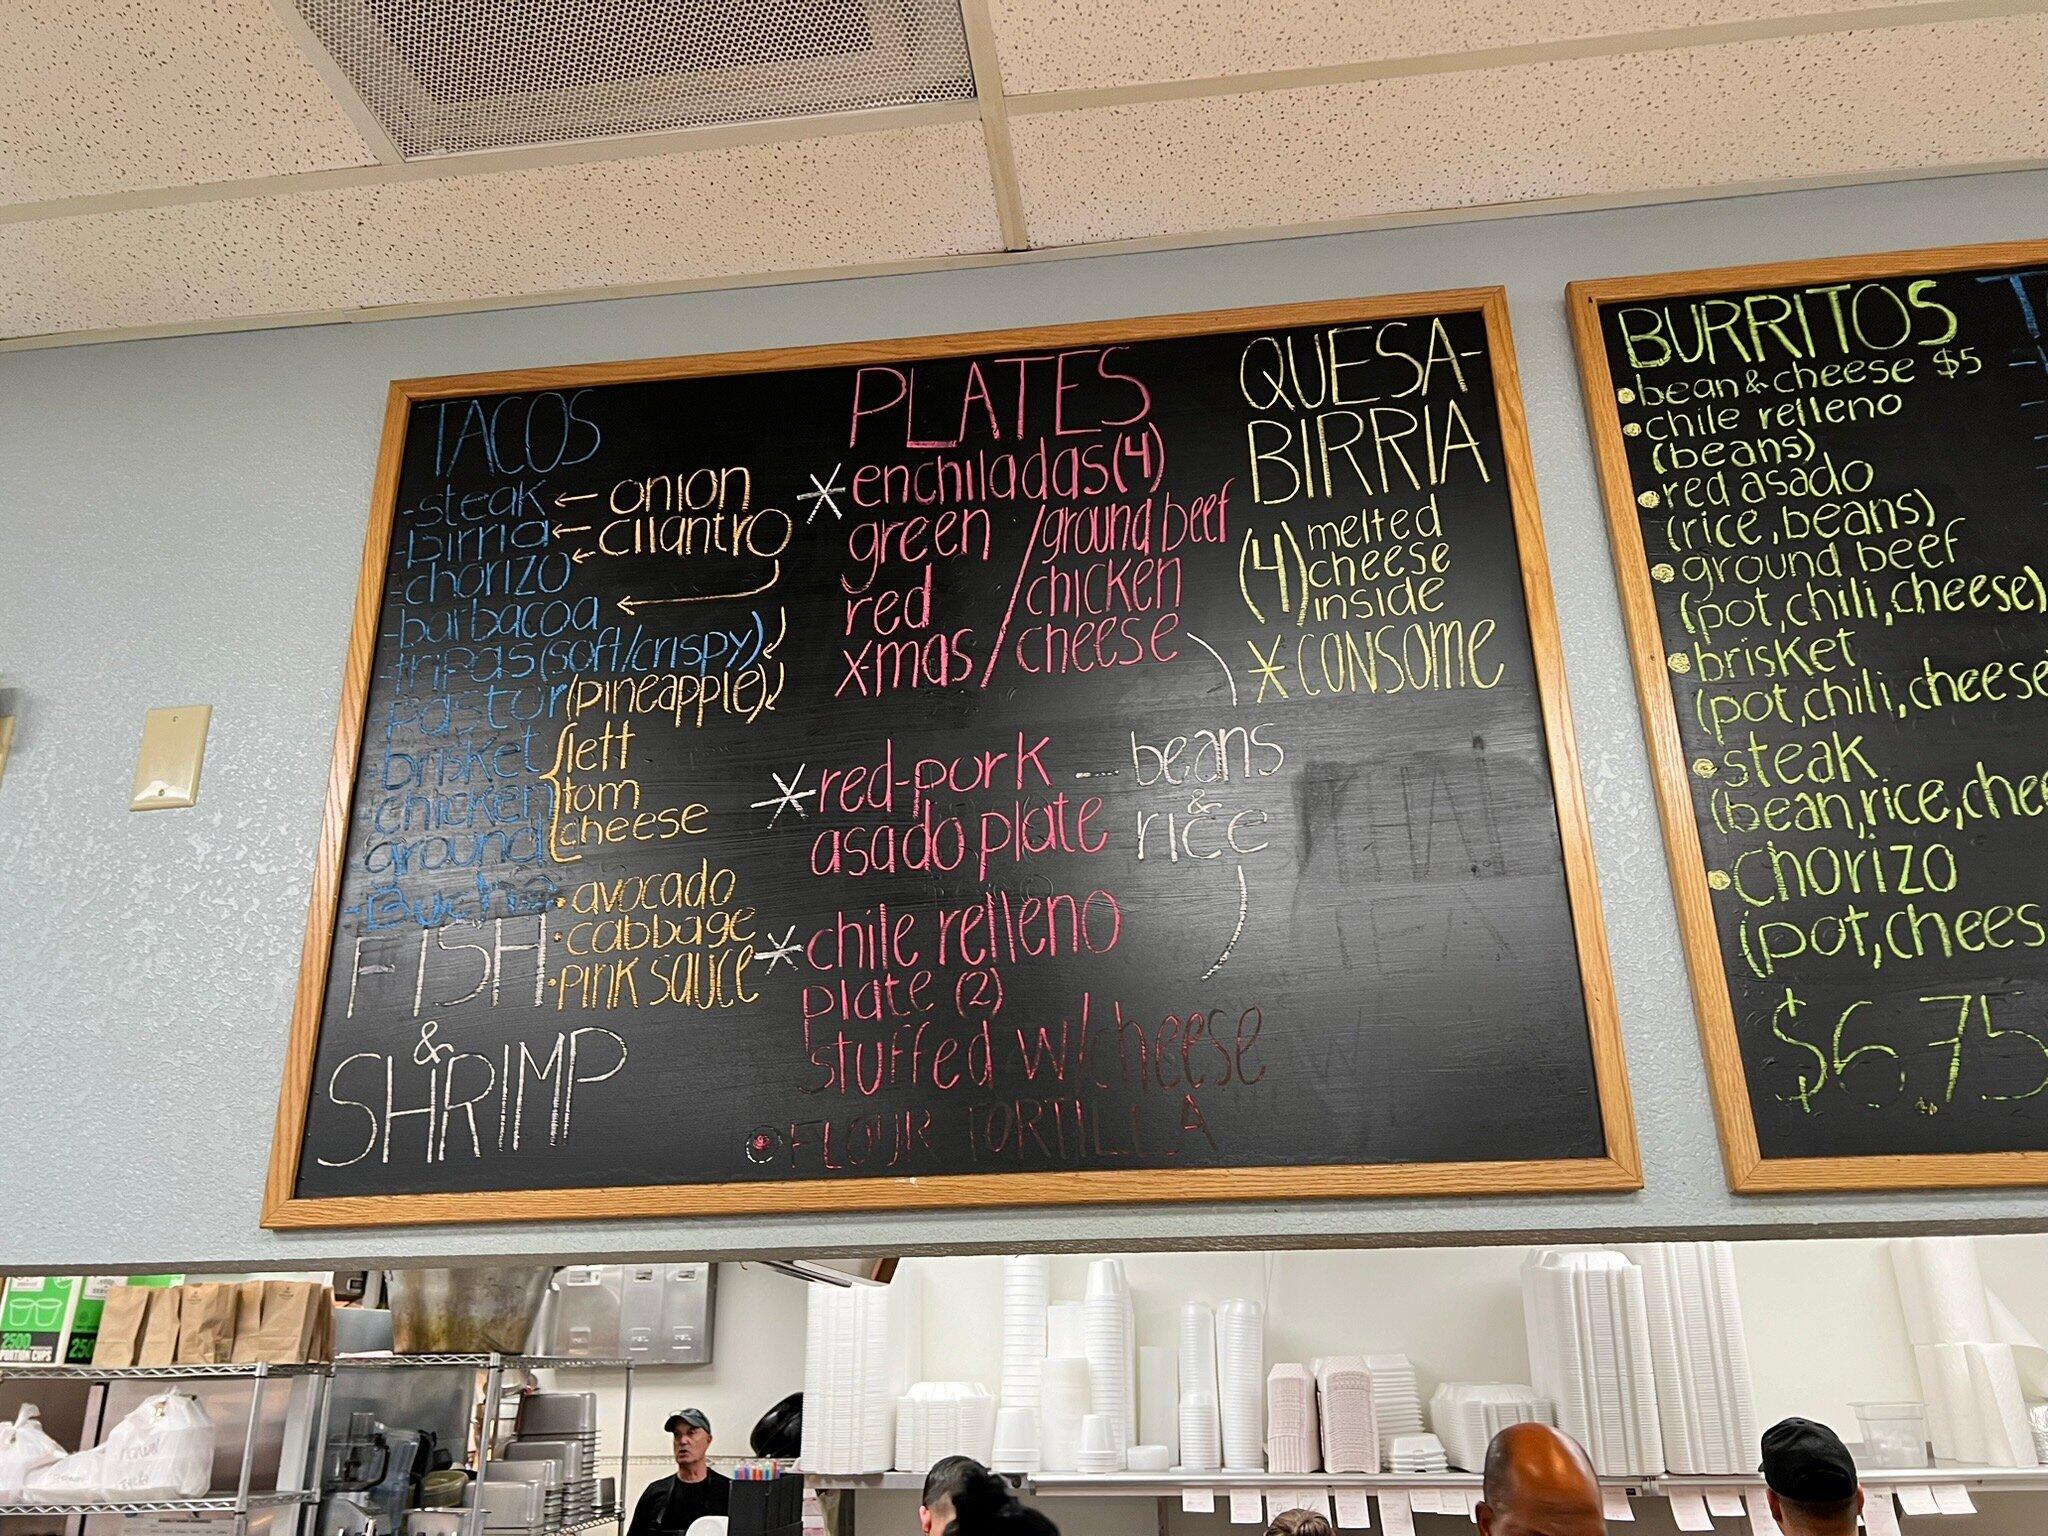 TACOS
-steak ← onion
-birria ← cilantro
-chorizo ←
-barbacoa ←
-tripas (soft/crispy)
-pastor (pineapple)
-brisket { lett
-chicken tom
-ground cheese
-Buche
FISH
&
SHRIMP
• avocado
• cabbage
• pink sauce
PLATES
* enchiladas (4)
green / ground beef
red / chicken
x-mas / cheese
* red-pork --- beans
asado plate & rice
* chile relleno
plate (2)
stuffed w/cheese
• FLOUR TORTILLA
QUESA-
BIRRIA
(4) melted
cheese
inside
* CONSOME
BURRITOS
• bean & cheese $5
• chile relleno
(beans)
• red asado
(rice, beans)
• ground beef
(pot, chili, cheese)
• brisket
(pot, chili, cheese
• steak
(bean, rice, chee
• chorizo
(pot, chees
$6.75
2500
PORTION CUPS
250